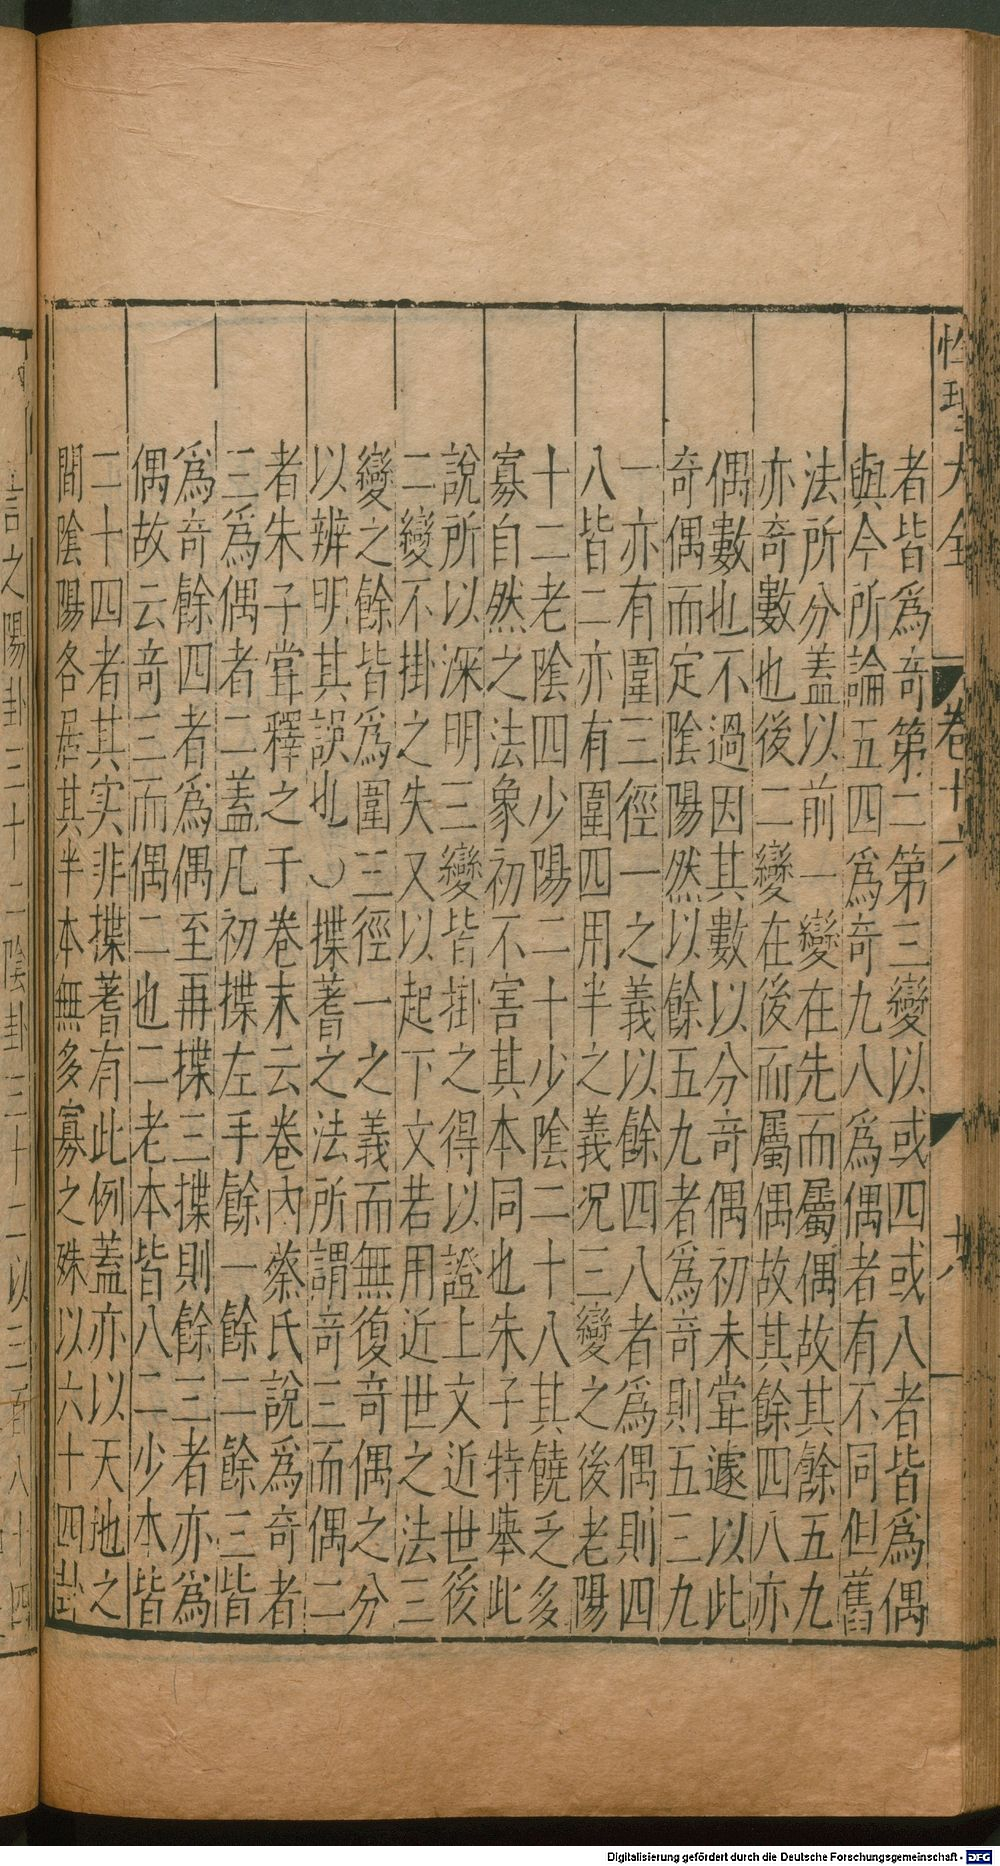 性理大全 卷十六 十八
者皆爲奇第二第三變以或四或八者皆爲偶
與今所論五四爲奇九八爲偶者有不同但舊
法所分蓋以前一變在先而屬偶故其餘五九
亦奇數也後二變在後而屬偶故其餘四八亦
偶數也不過因其數以分奇偶初未甞遽以此
奇偶而定陰陽然以餘五九者爲奇則五三九
一亦有圍三徑一之義以餘四八者爲偶則四
八皆二亦有圍四用半之義況三變之後老陽
十二老陰四少陽二十少陰二十八其饒乏多
寡自然之法象初不害其本同也朱子特舉此
說所以深明三變皆掛之得以證上文近世後
二變不掛之失又以起下文若用近世之法三
變之餘皆爲圍三徑一之義而無復奇偶之分
以辨明其誤也〇揲蓍之法所謂奇三而偶二
者朱子甞釋之于卷末云卷內蔡氏說爲奇者
三爲偶者二蓋凡初揲左手餘一餘二餘三皆
爲奇餘四者爲偶至再揲三揲則餘三者亦爲
偶故云奇三而偶二也二老本皆八二少本皆
二十四者其实非揲蓍有此例蓋亦以天地之
間陰陽各居其半本無多寡之殊以六十四卦
言之陽卦三十二陰卦三十二以三百八十四
Digitalisierung gefördert durch die Deutsche Forschungsgemeinschaft - DFG